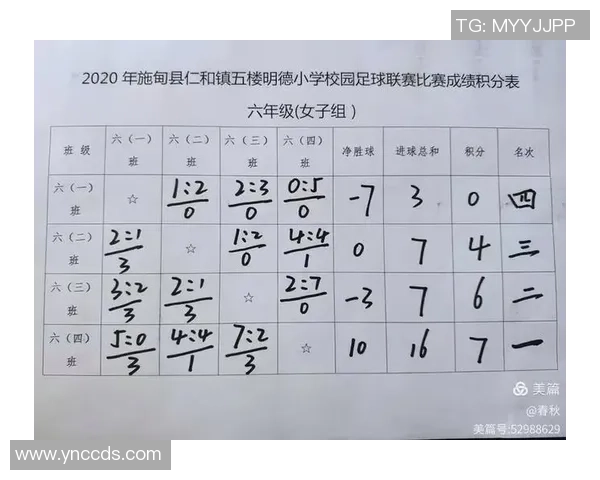 TG: MYYJJPP
2020年施甸县仁和镇五楼明德小学校园足球联赛比赛成绩积分表
六年级(女子组)
班级 六(一)班 六(二)班 六(三)班 六(四)班 净胜球 进球总和 积分 名次
六(一)班 ☆ 1:2/0 2:3/0 0:5/0 -7 3 0 四
六(二)班 2:1/3 ☆ 1:2/0 4:4/1 0 7 4 三
六(三)班 3:2/3 2:1/3 ☆ 2:7/0 -3 7 6 二
六(四)班 5:0/3 4:4/1 7:2/3 ☆ 10 16 7 一
美篇
@春秋
美篇号:52988629
www.ynccds.com